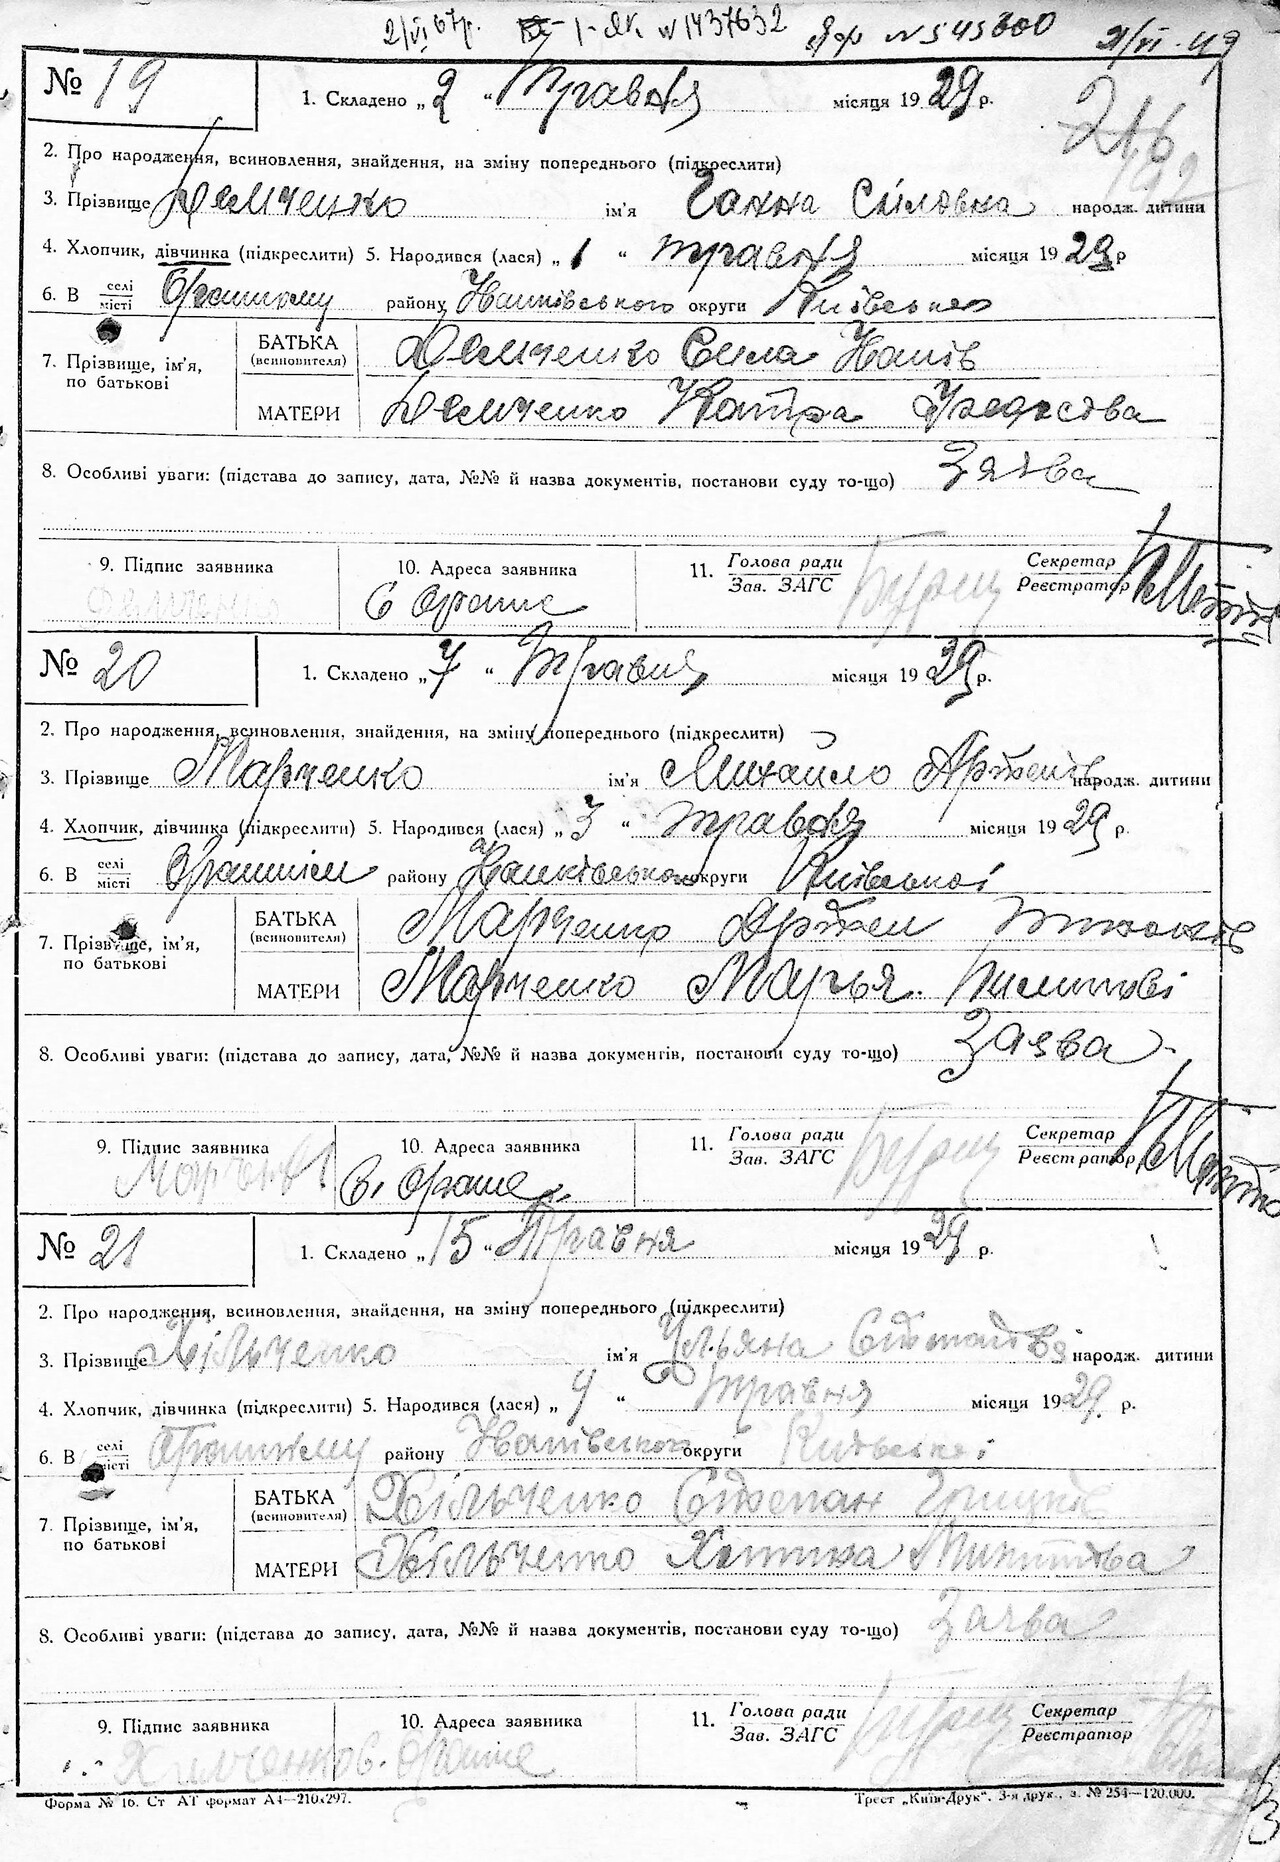 2/VI 67р. І-ЯК №1437632 № 545600 2/VI-49
№ 19
1. Складено „ 2 “ Травня місяця 1929 р.
216
2. Про народження, всиновлення, знайдення, на зміну попереднього (підкреслити)
3. Прізвище Демченко ім'я Ганна Силовна народж. дитини
4. Хлопчик, дівчинка (підкреслити) 5. Народився (лася) „ 1 “ травня місяця 1929 р
6. В селі місті району округи Київської
7. Прізвище, ім'я, по батькові
БАТЬКА (всиновителя) Демченко Сила
МАТЕРИ Демченко
8. Особливі уваги: (підстава до запису, дата, №№ й назва документів, постанови суду то-що) Заява
9. Підпис заявника Демченко
10. Адреса заявника С Ораное
11. Голова ради Зав. ЗАГС
Секретар Реєстратор
№ 20
1. Складено „ 7 “ Травня місяця 1929 р.
2. Про народження, всиновлення, знайдення, на зміну попереднього (підкреслити)
3. Прізвище Марченко ім'я Михайло Артемів народж. дитини
4. Хлопчик, дівчинка (підкреслити) 5. Народився (лася) „ 3 “ травня місяця 1929 р.
6. В селі місті району округи Київської
7. Прізвище, ім'я, по батькові
БАТЬКА (всиновителя) Марченко Артем
МАТЕРИ Марченко Мар'я
8. Особливі уваги: (підстава до запису, дата, №№ й назва документів, постанови суду то-що) Заява
9. Підпис заявника
10. Адреса заявника С. Ораное
11. Голова ради Зав. ЗАГС
Секретар Реєстратор
№ 21
1. Складено „ 15 “ Травня місяця 1929 р.
2. Про народження, всиновлення, знайдення, на зміну попереднього (підкреслити)
3. Прізвище Хільченко ім'я Ульяна народж. дитини
4. Хлопчик, дівчинка (підкреслити) 5. Народився (лася) „ “ травня місяця 1929 р.
6. В селі місті району округи Київської
7. Прізвище, ім'я, по батькові
БАТЬКА (всиновителя) Хільченко Степан Грицьків
МАТЕРИ Хільченко
8. Особливі уваги: (підстава до запису, дата, №№ й назва документів, постанови суду то-що) Заява
9. Підпис заявника
10. Адреса заявника
11. Голова ради Зав. ЗАГС
Секретар Реєстратор
Форма № 16. Ст АТ формат А4—210х297.
Трест „Київ-Друк“. 3-я друк., з. № 254—120.000.